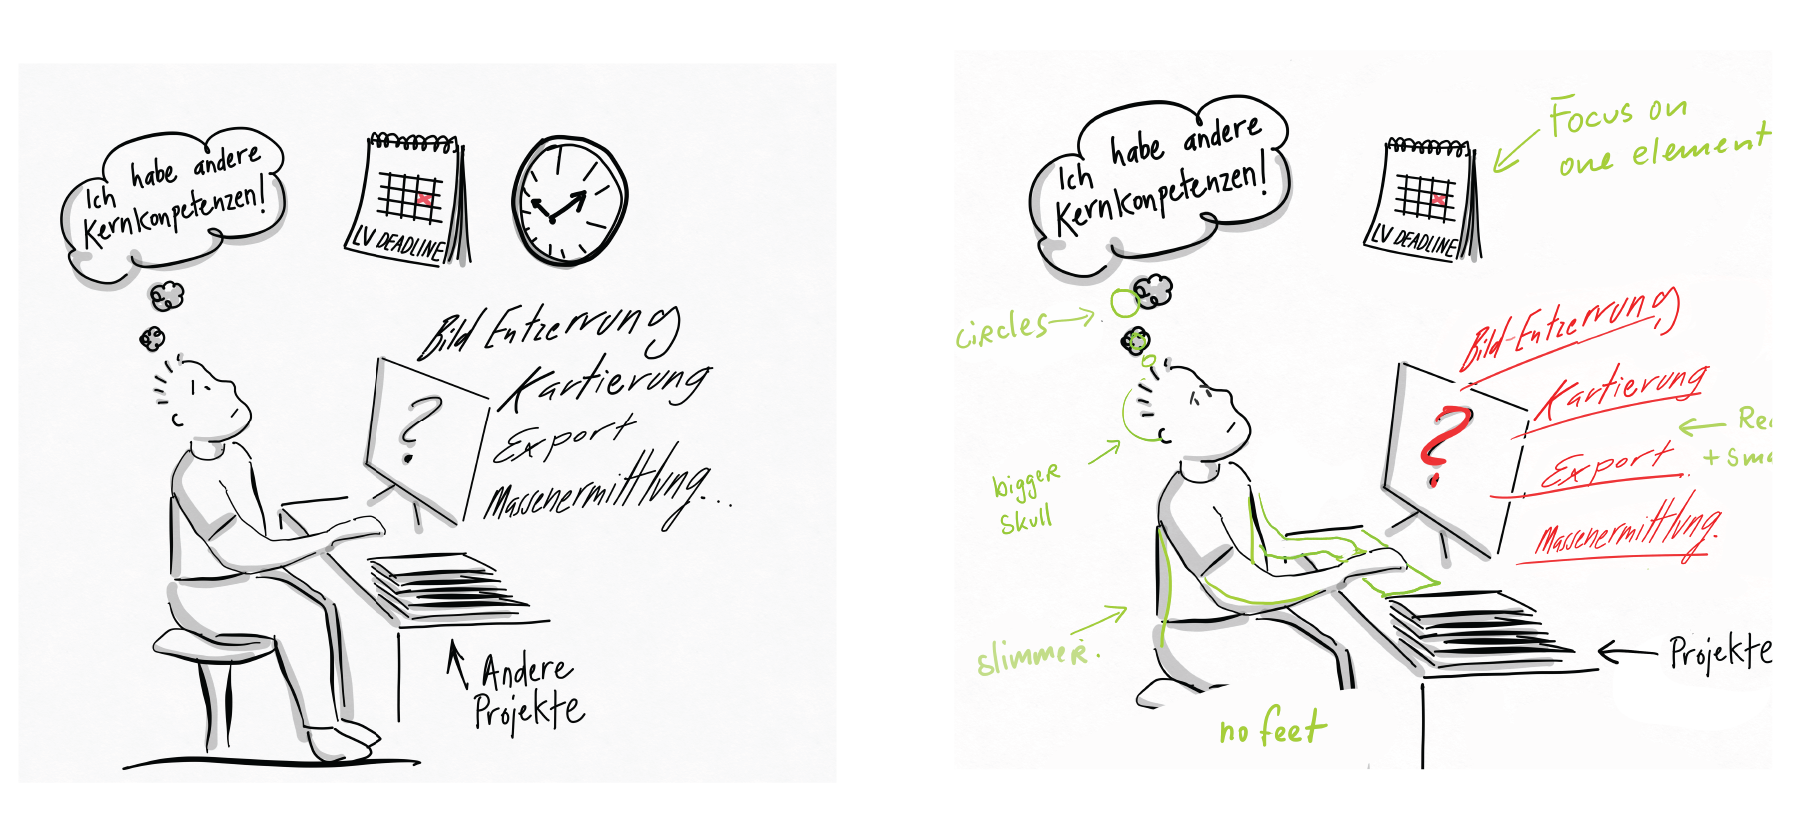 Ich habe andere
Kernkompetenzen!
LV DEADLINE
Bild Entzerrung
Kartierung
?
Export
Massenermittlung...
Andere
Projekte
Ich habe andere
Kernkompetenzen!
LV DEADLINE
Focus on
one element
circles
Bild-Entzerrung,
Kartierung
?
Export
Massenermittlung.
bigger
skull
slimmer.
Projekte
no feet